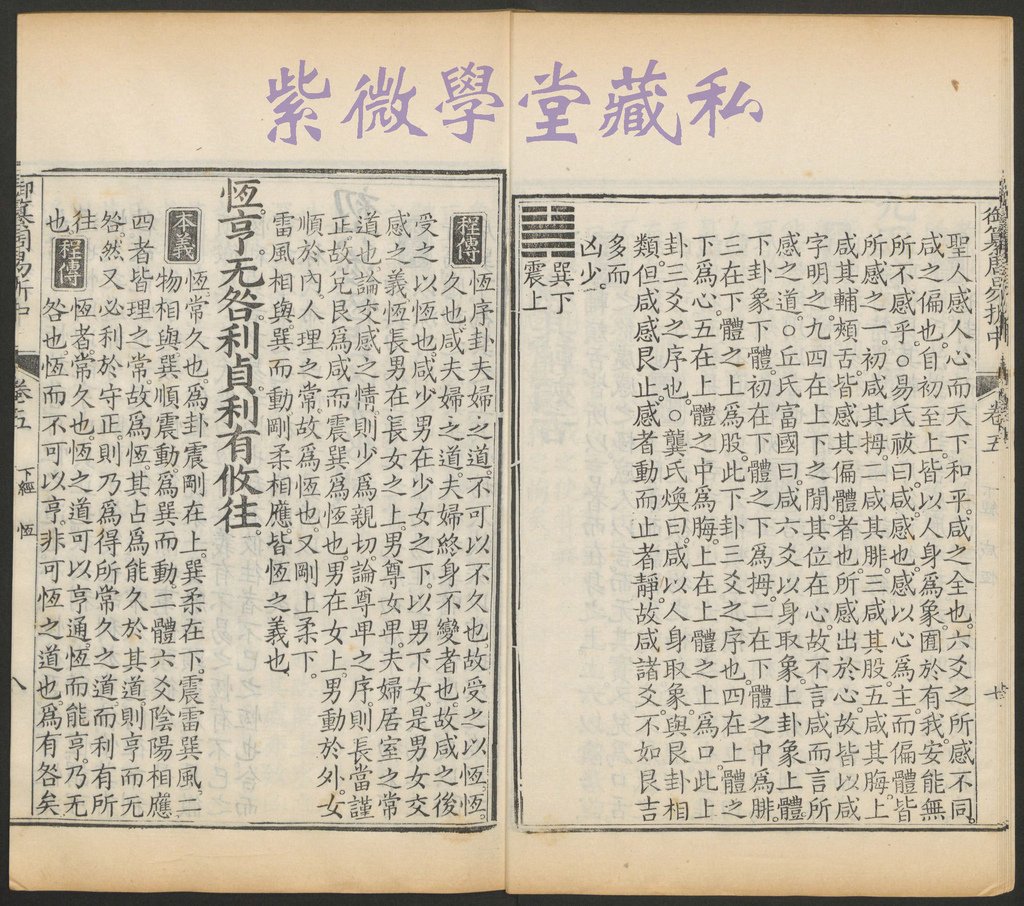 紫微學堂藏私
聖人感人心而天下和平。咸之全也。六爻之所感不同。
咸之偏也。自初至上。皆以人身爲象。囿於有我。安能無
所不感乎。○易氏祓曰。咸感也。感以心爲主。而偏體皆
所感之一。初咸其拇。二咸其腓。三咸其股。五咸其脢。上
咸其輔頰舌。皆感其偏體者也。所感出於心。故皆以咸
字明之。九四在上下之閒。其位在心。故不言咸而言所
感之道。○丘氏富國曰。咸六爻以身取象。上卦象上體。
下卦象下體。初在下體之下爲拇。二在下體之中爲腓。
三在下體之上爲股。此下卦三爻之序也。四在上體之
下爲心。五在上體之中爲脢。上在上體之上爲口。此上
卦三爻之序也。○龔氏煥曰。咸以人身取象。與艮卦相
類。但咸感艮止。感者動而止者靜。故咸諸爻不如艮吉
多而
凶少。
巽下
震上
程傳
恆序卦夫婦之道。不可以不久也。故受之以恆。恆。
久也。咸夫婦之道。夫婦終身不變者也。故咸之後
受之以恆也。咸少男在少女之下。以男下女。是男女交
感之義。恆長男在長女之上。男尊女卑。夫婦居室之常
道也。論交感之情。則少爲親切。論尊卑之序。則長當謹
正。故兌艮爲咸而震巽爲恆也。男在女上。男動於外。女
順於內。人理之常。故爲恆也。又剛上柔下。
雷風相與。巽而動。剛柔相應。皆恆之義也。
恆亨。无咎。利貞。利有攸往。
本義
恆常久也。爲卦震剛在上。巽柔在下。震雷巽風。二
物相與。巽順震動。爲巽而動。二體六爻陰陽相應。
四者皆理之常。故爲恆。其占爲能久於其道。則亨而无
咎。然又必利於守正。則乃爲得所常久之道而利有所
往也。
程傳
恆者。常久也。恆之道可以亨通。恆而能亨。乃无
咎也。恆而不可以亨。非可恆之道也。爲有咎矣
卷五
下經 恆
八
卷五